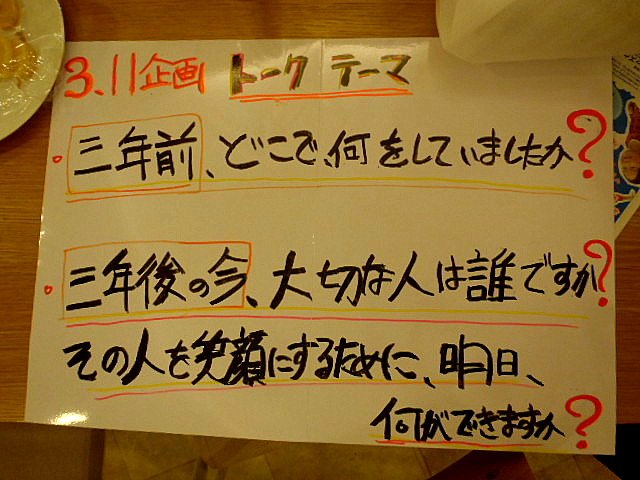 3.11企画 トーク テーマ
・三年前、どこで、何をしていましたか?
・三年後の今、大切な人は誰ですか?
その人を笑顔にするために、明日、
何ができますか?